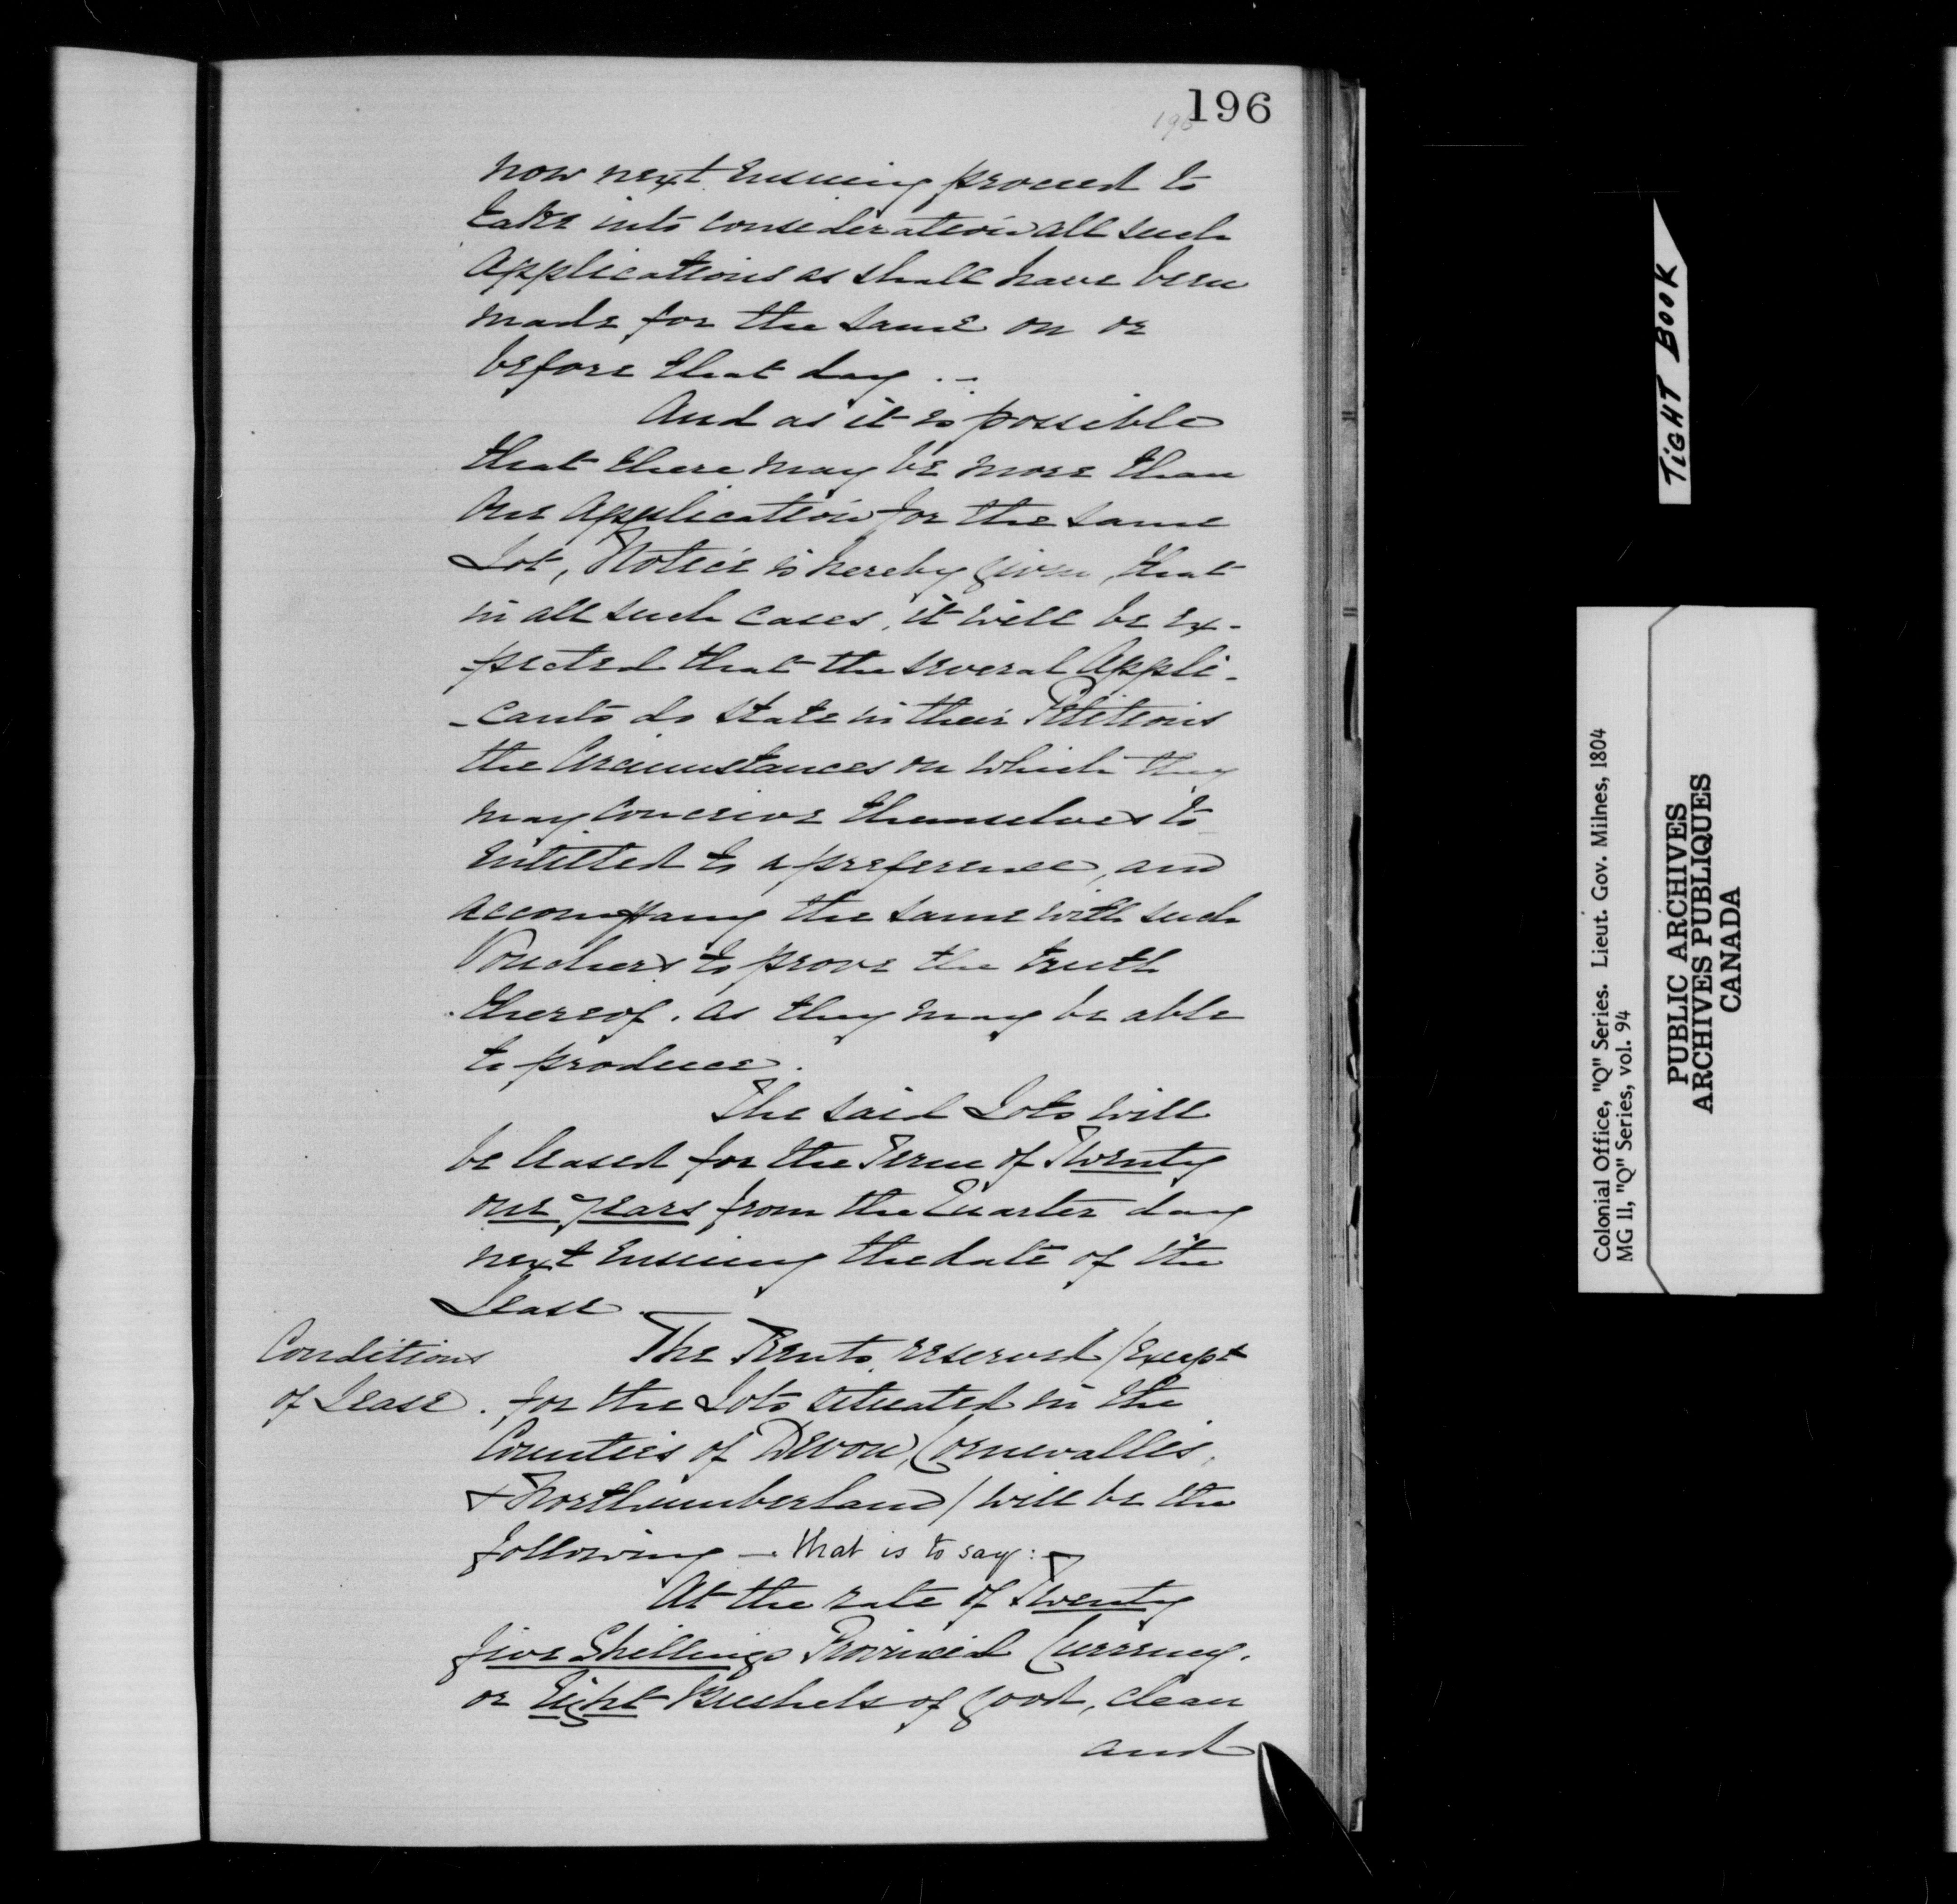 196
196
now next ensuing proceed to
take into consideration all such
Applications as shall have been
made for the same on or
before that day. -
And as it is possible
that there may be more than
one Application for the same
Lot, Notice is hereby given, that
in all such cases, it will be ex-
-pected that the several Appli-
-cants do state in their Petitions
the Circumstances on which they
may conceive themselves to
entitled to a preference, and
accompany the same with such
Vouchers to prove the truth
thereof. as they may be able
to produce.
The said Lots will
be leased for the Term of Twenty
one years from the Quarter day
next ensuing the date of the
Lease.
Conditions
of Lease.
The Rents reserved / except
for the Lots situated in the
Counties of Devon, Cornwallis,
& Northumberland / will be the
following — that is to say: —
At the rate of Twenty
five Shillings Provincial Currency.
or Eight Bushels of good, clean
and
TIGHT BOOK
Colonial Office, "Q" Series. Lieut. Gov. Milnes, 1804
MG 11, "Q" Series, vol. 94
PUBLIC ARCHIVES
ARCHIVES PUBLIQUES
CANADA